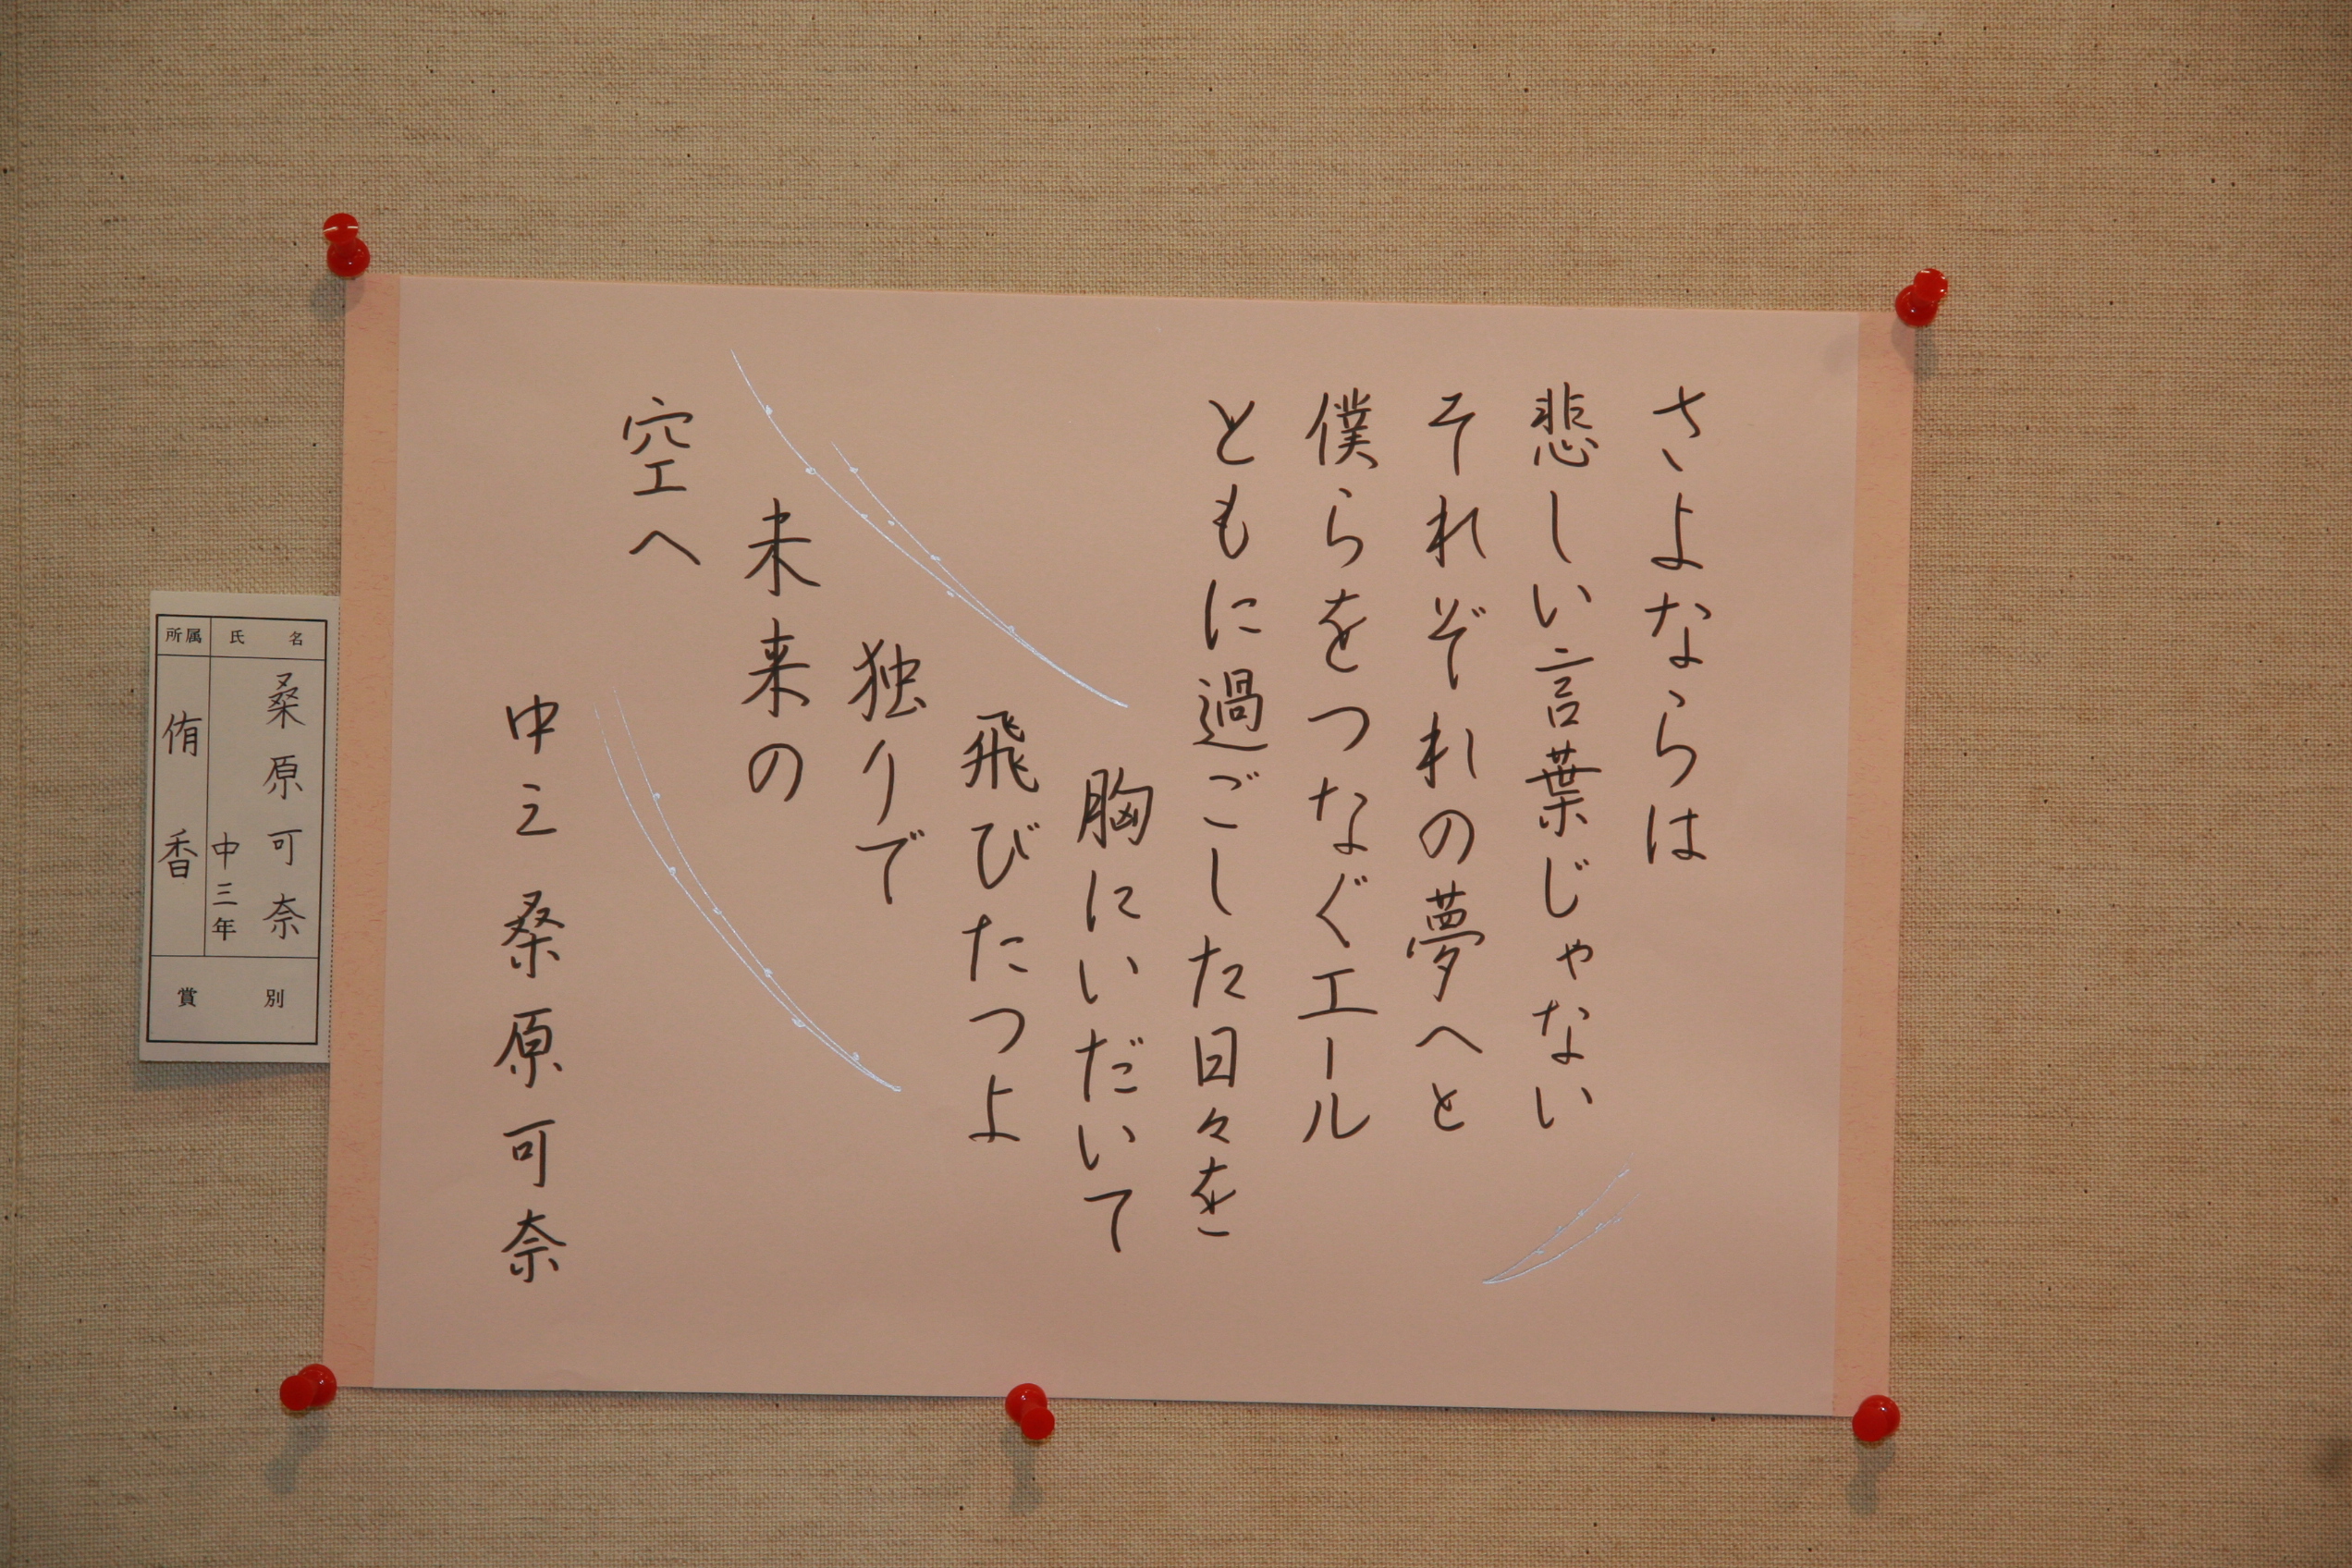 さよならは
悲しい言葉じゃない
それぞれの夢へと
僕らをつなぐエール
ともに過ごした日々を
胸にいだいて
飛びたつよ
独りで
未来の
空へ
中三 桑原可奈
氏名
桑原可奈
中三年
所属
侑香
賞別